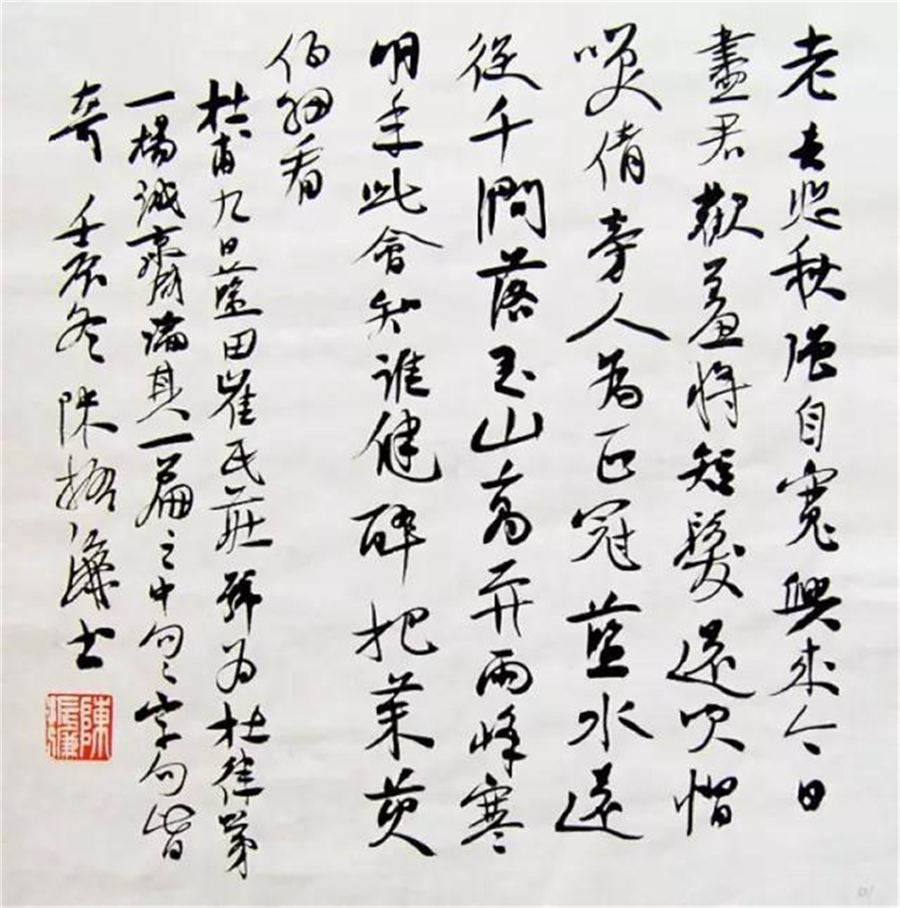 老去悲秋强自寬興來今日
盡君歡羞將短髮還吹帽
咲倩旁人為正冠藍水遠
從千澗落玉山高并兩峰寒
明年此會知誰健醉把茱萸
仔細看
杜甫九日藍田崔氏莊號為杜律第
一楊誠齋論其一篇之中句々字句皆
奇 壬辰冬 陳振濂書
陳振濂